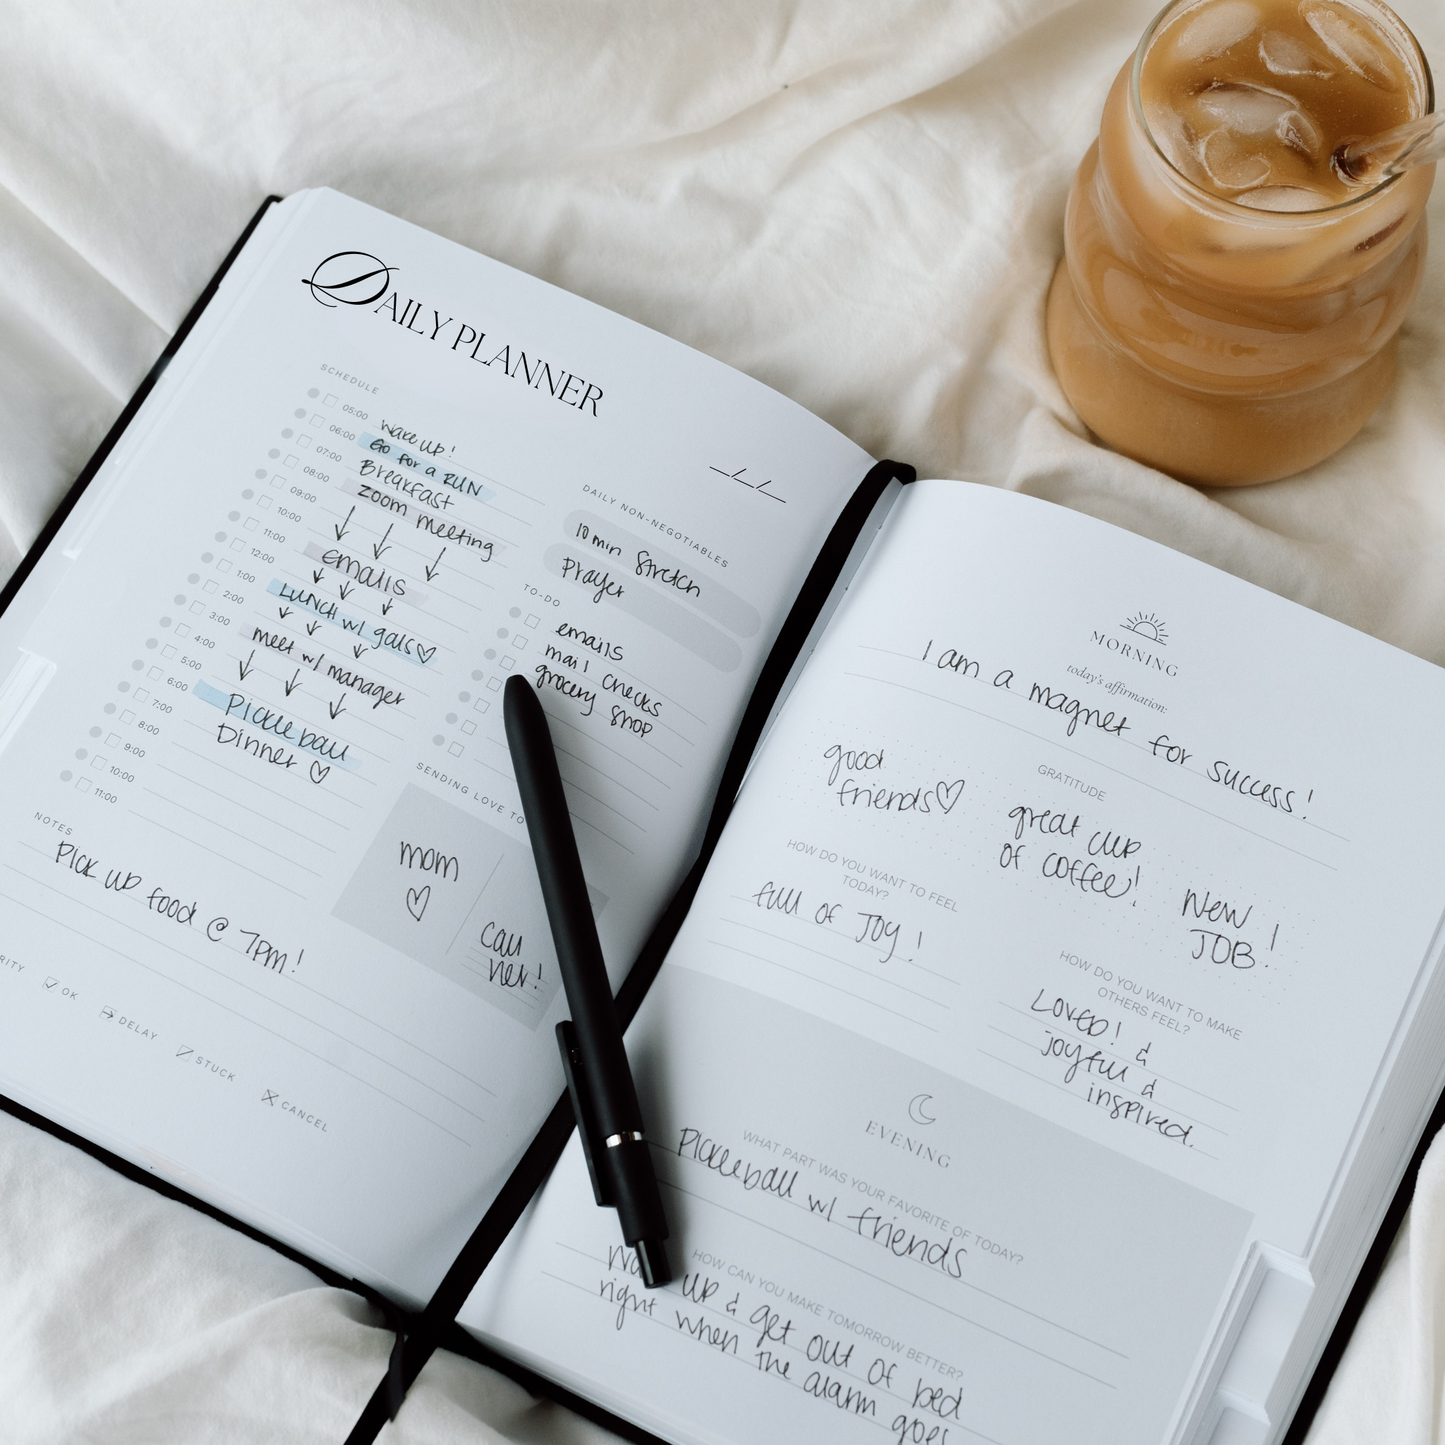 DAILY PLANNER
SCHEDULE
05:00 Wake up!
06:00 Go for a RUN
07:00 Breakfast
08:00 Zoom meeting
09:00
10:00
11:00 emails
12:00
1:00 LUNCH w/ gals
2:00
3:00 meet w/ manager
4:00
5:00
6:00 Pickleball
7:00 Dinner
8:00
9:00
10:00
11:00
DAILY NON-NEGOTIABLES
10 min Stretch
Prayer
TO-DO
emails
mail checks
grocery shop
SENDING LOVE TO
mom
call
her!
NOTES
Pick up food @ 7pm!
OK
DELAY
STUCK
CANCEL
MORNING
today's affirmation:
I am a magnet for success!
GRATITUDE
good
friends
great cup
of coffee!
New
JOB!
HOW DO YOU WANT TO FEEL
TODAY?
full of JOY!
HOW DO YOU WANT TO MAKE
OTHERS FEEL?
LOVED! &
joyful &
inspired.
EVENING
WHAT PART WAS YOUR FAVORITE OF TODAY?
Pickleball w/ friends
HOW CAN YOU MAKE TOMORROW BETTER?
up & get out of bed
right when the alarm goes